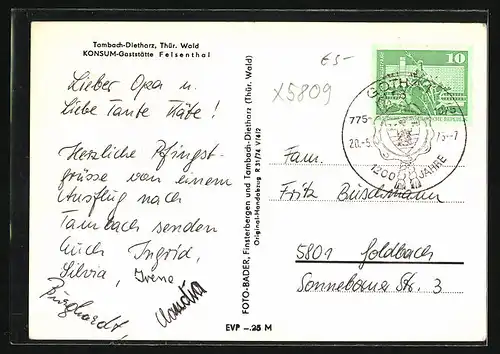 Tambach-Dietharz, Thür. Wald
KONSUM-Gaststätte Felsenthal
Lieber Opa u.
liebe Tante Käte!
Herzliche Pfingst-
grüsse von einem
Ausflug nach
Tambach senden
Euch Ingrid,
Silvia, Irene
Burghardt,
Claudia
FOTO-BADER, Finsterbergen und Tambach-Dietharz (Thür. Wald)
Original-Handabzug R 31/74 V/4/2
EVP -.25 M
X5809
10
GOTHA
775-
1200 JAHRE
Fam.
Fritz Büschmann
5801 Goldbach
Sonneborner Str. 3